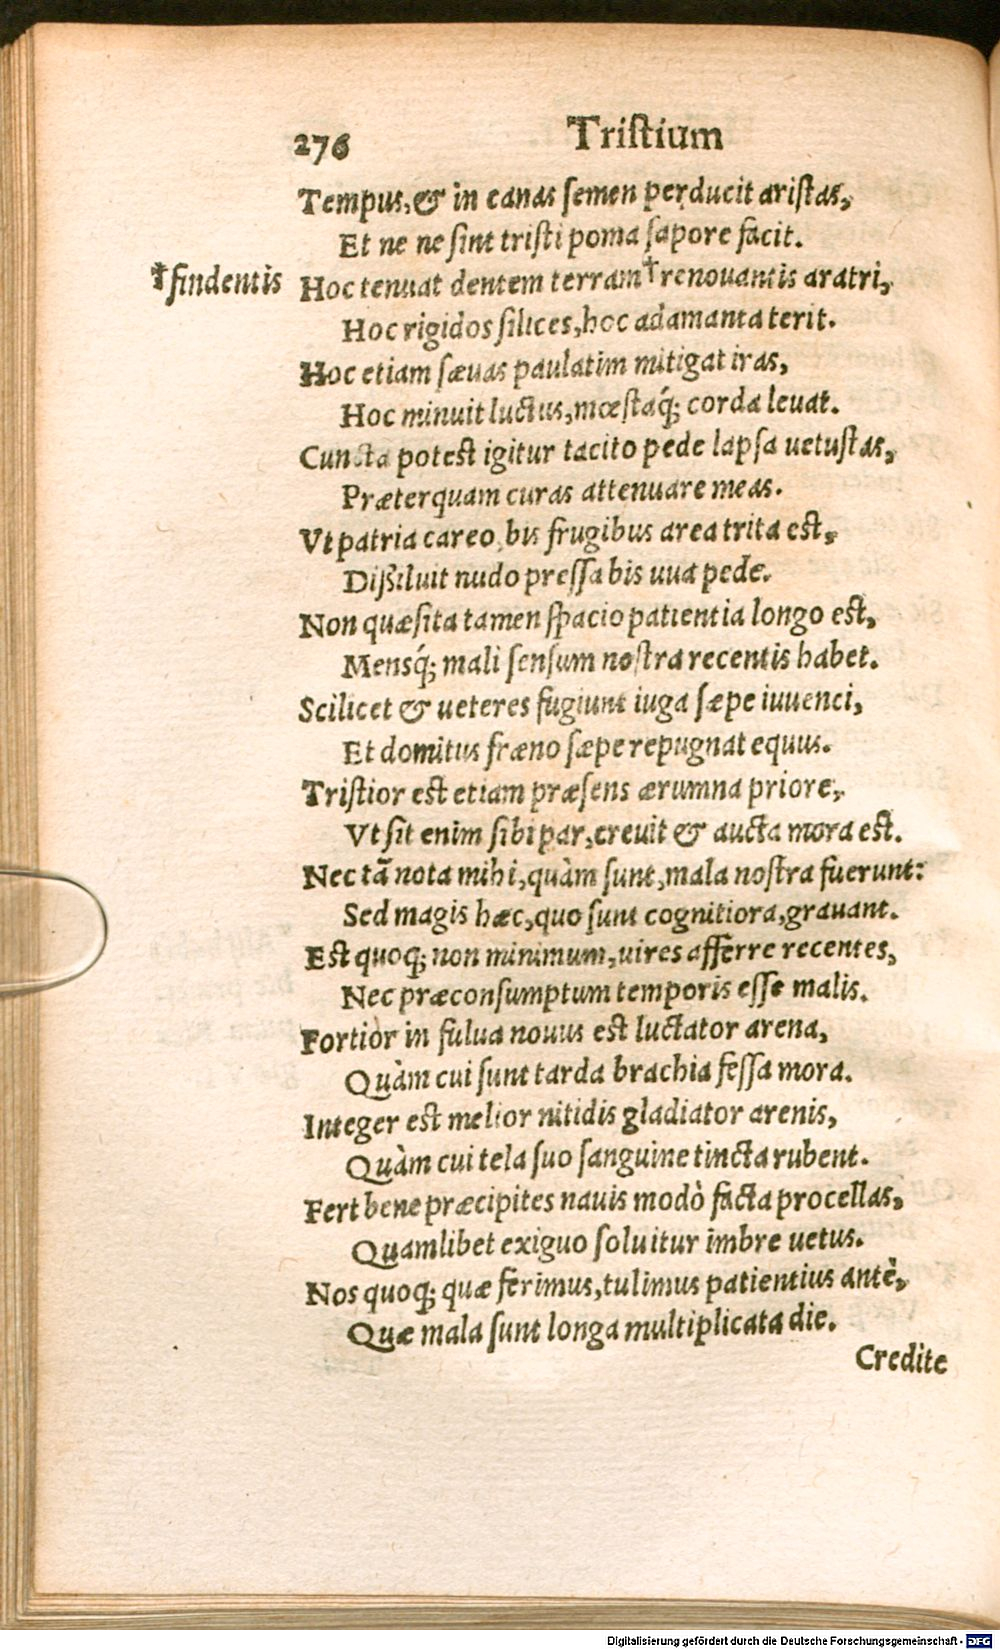 276 Tristium
Tempus, & in canas semen perducit aristas,
Et ne ne sint tristi poma sapore facit.
†findentis Hoc tenuat dentem terram †renouantis aratri,
Hoc rigidos silices, hoc adamanta terit.
Hoc etiam sæuas paulatim mitigat iras,
Hoc minuit luctus, mœstaq́; corda leuat.
Cuncta potest igitur tacito pede lapsa uetustas,
Præterquam curas attenuare meas.
Vt patria careo, bis frugibus area trita est,
Dißiluit nudo pressa bis uua pede.
Non quæsita tamen spacio patientia longo est,
Mensq́; mali sensum nostra recentis habet.
Scilicet & ueteres fugiunt iuga sæpe iuuenci,
Et domitus fræno sæpe repugnat equus.
Tristior est etiam præsens ærumna priore,
Vt sit enim sibi par, creuit & aucta mora est.
Nec tã nota mihi, quàm sunt, mala nostra fuerunt:
Sed magis hæc, quo sunt cognitiora, grauant.
Est quoq; non minimum, uires afferre recentes,
Nec præconsumptum temporis esse malis.
Fortior in fulua nouus est luctator arena,
Quàm cui sunt tarda brachia fessa mora.
Integer est melior nitidis gladiator arenis,
Quàm cui tela suo sanguine tincta rubent.
Fert bene præcipites nauis modò facta procellas,
Quamlibet exiguo soluitur imbre uetus.
Nos quoq; quæ ferimus, tulimus patientius antè,
Quæ mala sunt longa multiplicata die.
Credite
Digitalisierung gefördert durch die Deutsche Forschungsgemeinschaft - DFG